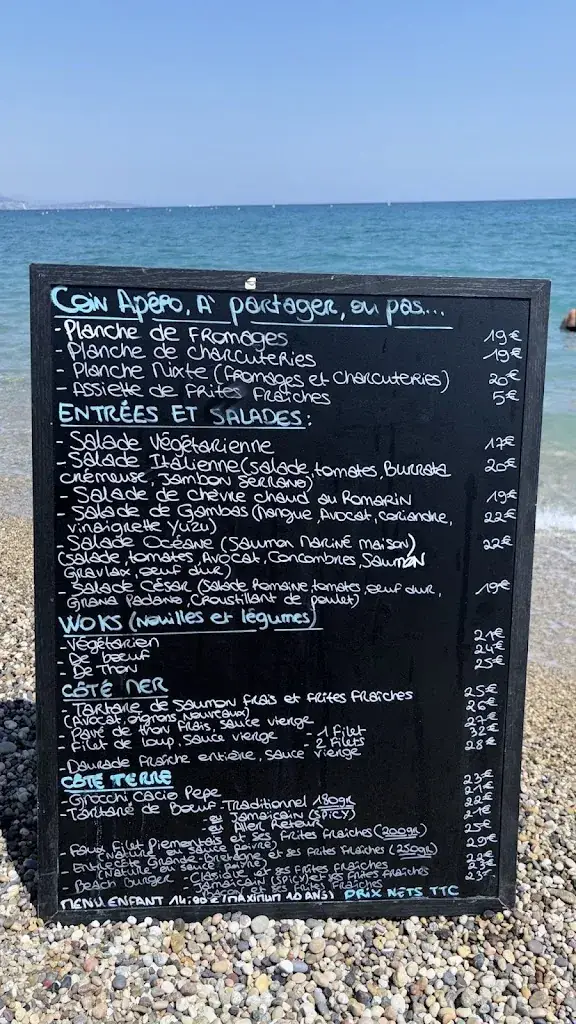 Coin Apéro, A' partager, ou pas...
- Planche de Fromages 19€
- Planche de charcuteries 19€
- Planche Mixte (Fromages et charcuteries) 20€
- Assiette de Frites Fraîches 5€
ENTRÉES ET SALADES:
- Salade végétarienne 17€
- Salade Italienne (salade, tomates, Burrata 20€
crémeuse, Jambon Serrano)
- Salade de chèvre chaud au Romarin 19€
- Salade de Gambas (Mangue, Avocat, coriandre, 22€
vinaigrette Yuzu)
- Salade Océane (Saumon Mariné maison) 22€
(Salade, tomates, Avocat, Concombres, Saumon
Gravlax, œuf dur)
- Salade César (Salade Romaine, tomates, œuf dur, 19€
Grana Padano, Croustillant de poulet)
WOKS (Nouilles et légumes)
- Végétarien 21€
- De bœuf 24€
- De Thon 25€
CÔTÉ MER
- Tartare de Saumon Frais et Frites Fraîches 25€
(Avocat, oignons nouveaux) 26€
- Pavé de thon Frais, sauce vierge 27€
- Filet de loup, Sauce vierge - 1 Filet 32€
- 2 Filets 28€
- Daurade Fraîche entière, sauce vierge
CÔTÉ TERRE 23€
- Gnocchi Cacio Pepe
- Tartare de Bœuf - Traditionnel 180gr 22€
- Jamaicain (SPICY)
- Aller Retour 25€
- Faux Filet Piemontais et ses Frites Fraîches (200gr) 29€
(Nature ou sauce poivre)
- Grande-Bretagne et ses Frites Fraîches (250gr)
(Nature ou sauce poivre)
- Beach Burger - Classique et ses Frites Fraîches
- Jamaicain (SPICY) et ses Frites Fraîches
MENU ENFANT (Maximum 10 ANS) PRIX NETS TTC